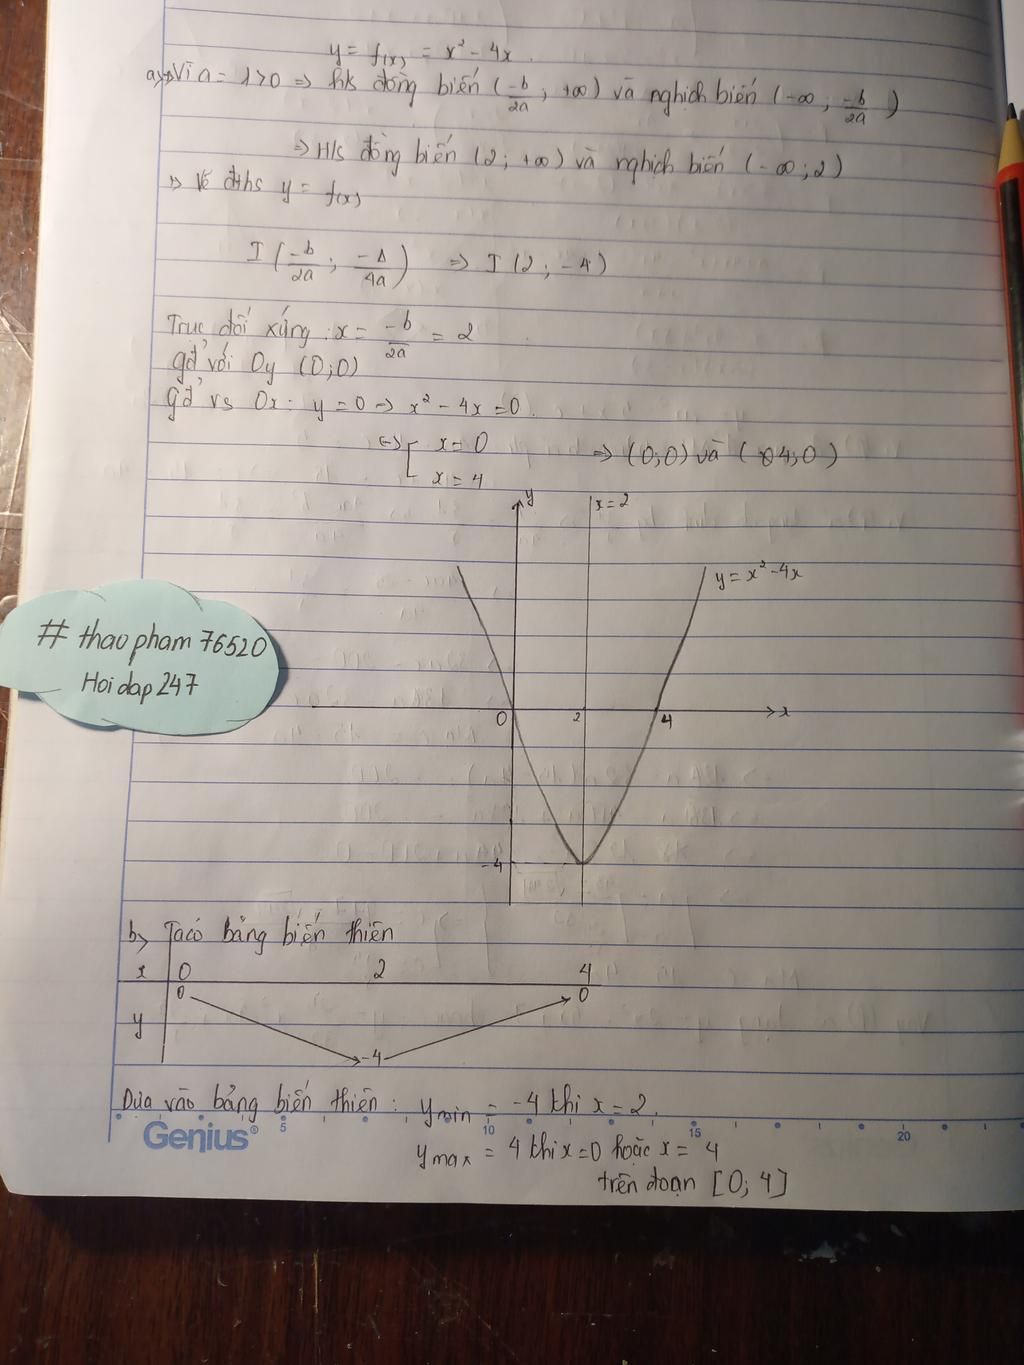 y = f(x) = x² - 4x.
a, * Vì a = 1 > 0 => h/s đồng biến (-b/2a ; +∞) và nghịch biến (-∞ ; -b/2a)
=> H/s đồng biến (2; +∞) và nghịch biến (-∞; 2)
* Vẽ đths y = f(x)
I (-b/2a ; -Δ/4a) => I (2 ; -4)
Trục đối xứng : x = -b/2a = 2
gđ² với Oy (0;0)
Gđ² vs Ox: y = 0 => x² - 4x = 0.
<=> [ x = 0 => (0;0) và (4;0)
x = 4
y
x = 2
y = x² - 4x
# thaopham76520
Hoidap247
0 2 4 x
-4
b, Ta có bảng biến thiên
x 0 2 4
0 0
y
-4
Dựa vào bảng biến thiên : ymin = -4 khi x = 2.
Genius® 5 10 15 20
ymax = 4 khi x = 0 hoặc x = 4
trên đoạn [0; 4]